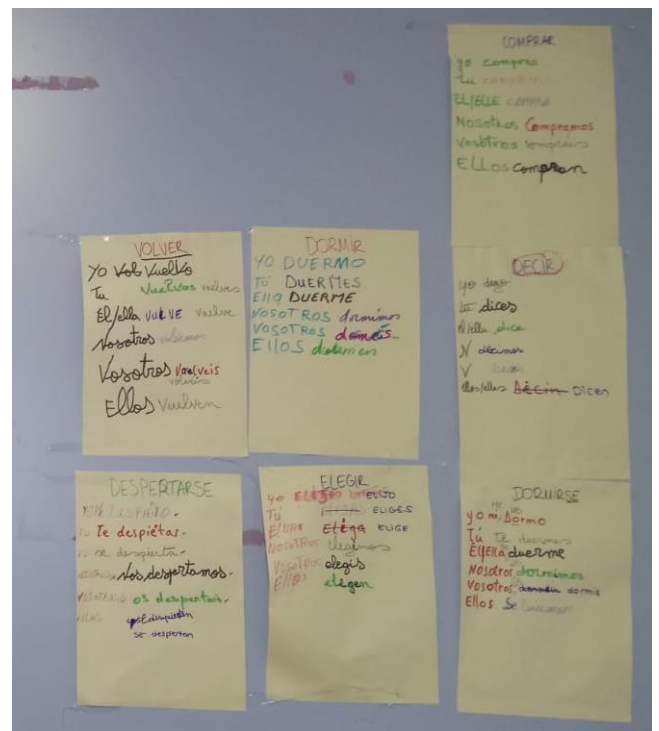 COMPRAR
yo compro
Tu
EL/ELLE COMPRA
Nosotros Compramos
Vosotros
ELLos compran
VOLVER
Yo Vuelvo
Tu Vuelvas vuelves
El/ella VUELVE vuelve
Nosotros volvemos
Vosotros Vuelveis
volveis
Ellos Vuelven
DORMIR
YO DUERMO
TÚ DUERMES
Ella DUERME
NOSOTROS dormimos
VOSOTROS
EllOS duermen
DECIR
yo digo
tú dices
él/ella dice
N décimos
V
ellos/ellas Décin Dicen
DESPERTARSE
Te despiétas.
se despierta.
Nos despertamos.
VOSOTROS os despertais.
ellos
se despiertan
ELEGIR
yo ELIJO
Tú ELIGES
El/Ella Elėga ELIGE
Nosotros elegimos
Vosotros elegís
Ellos eligen
DORMIRSE
yo Dormo
Tú te duermes
El/Ella duerme
Nosotros dormimos
Vosotros dormis
Ellos Se duermen